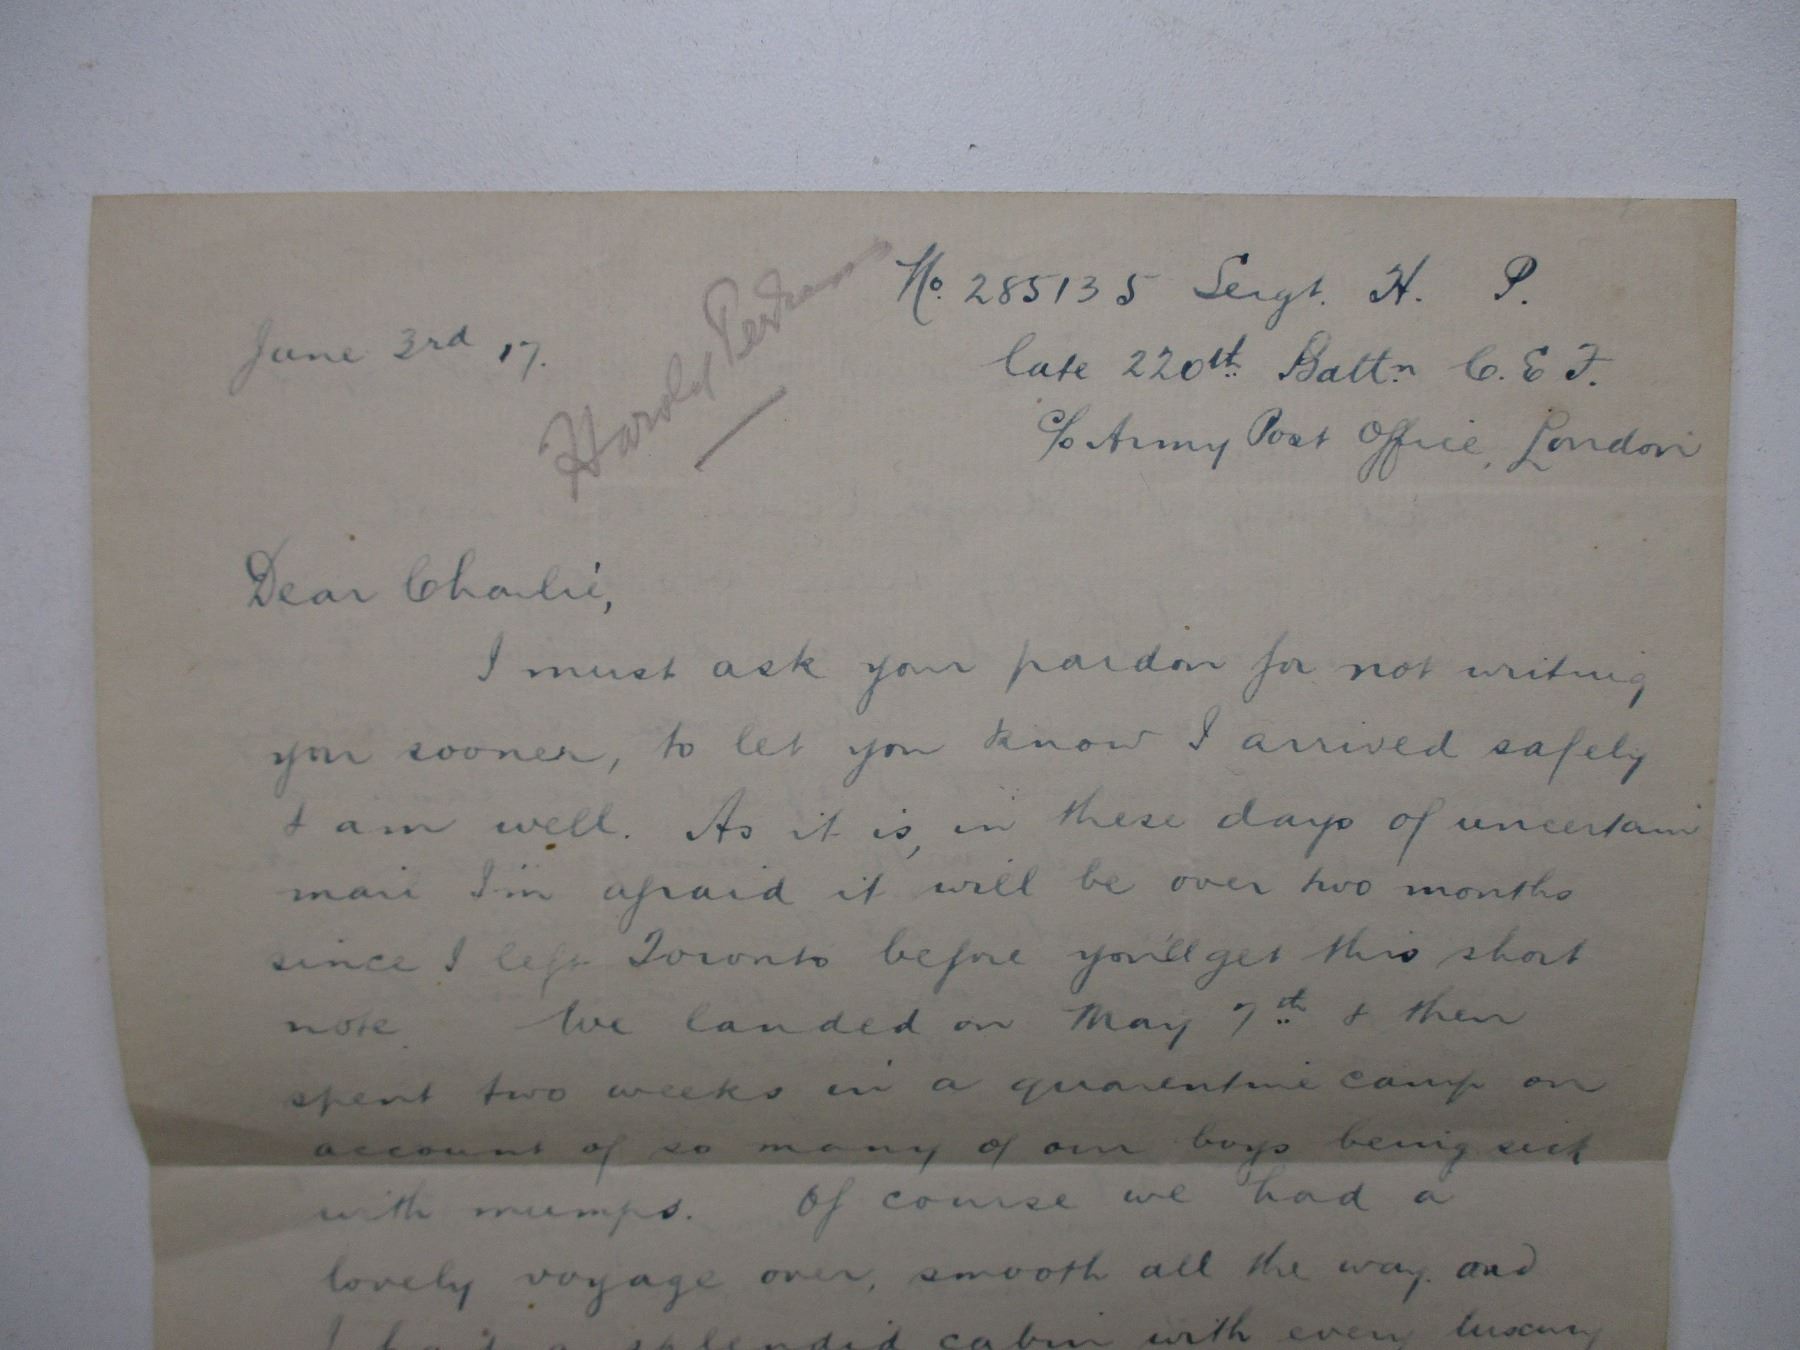 No. 285135 Sergt. H. P.
June 3rd 17.
late 220th Battn C. E F.
c/o Army Post Office, London
Harold
Dear Charlie,
I must ask your pardon for not writing
you sooner, to let you know I arrived safely
& am well. As it is, in these days of uncertain
mail I'm afraid it will be over two months
since I left Toronto before you'll get this short
note. We landed on May 7th & then
spent two weeks in a quarentine camp on
account of so many of our boys being sick
with mumps. Of course we had a
lovely voyage over, smooth all the way. and
I had a splendid cabin with every luxury